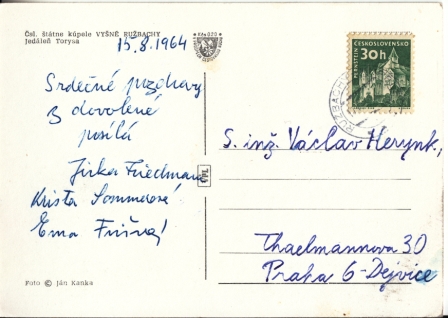 Čsl. štátne kúpele VYŠNÉ RUŽBACHY
Jedáleň Torysa
15. 8. 1964
Srdečné pozdravy
z dovolené
posílá
Jirka Friedmann
Krista Sommerová
Ema
Foto © Ján Kanka
PERNŠTEJN
ČESKOSLOVENSKO
30h
S. inž. Václav Herynk,
Thaelmannova 30
Praha 6-Dejvice